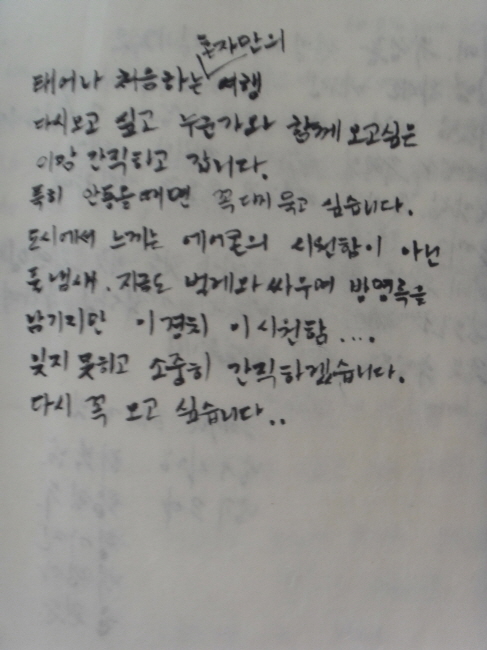 혼자만의
태어나 처음하는 여행
다시오고 싶고 누군가와 함께 오고싶은
이맘 간직하고 갑니다.
특히 안동을 때면 꼭 다시 묵고 싶습니다.
도시에서 느끼는 에어콘의 시원함이 아닌
풀냄새. 지금도 벌레와 싸우며 방명록을
남기지만 이 경치 이 시원함....
잊지 못하고 소중히 간직하겠습니다.
다시 꼭 오고 싶습니다..